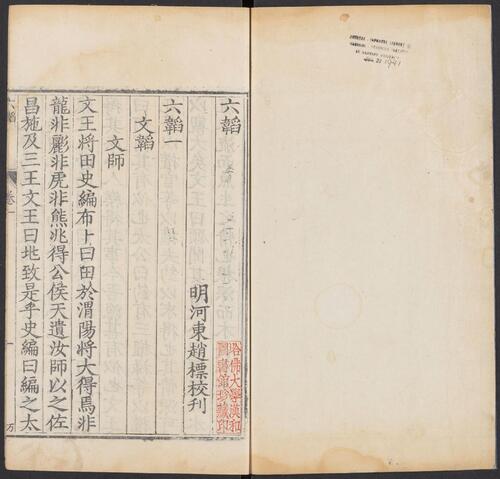 六韜
明河東趙標校刊
六韜一
文韜
文師
文王將田史編布卜曰田於渭陽將大得焉非
龍非彲非虎非熊兆得公侯天遺汝師以之佐
昌施及三王文王曰兆致是乎史編曰編之太
六韜
卷一
一
哈佛大學漢和
圖書館珍藏印
1941